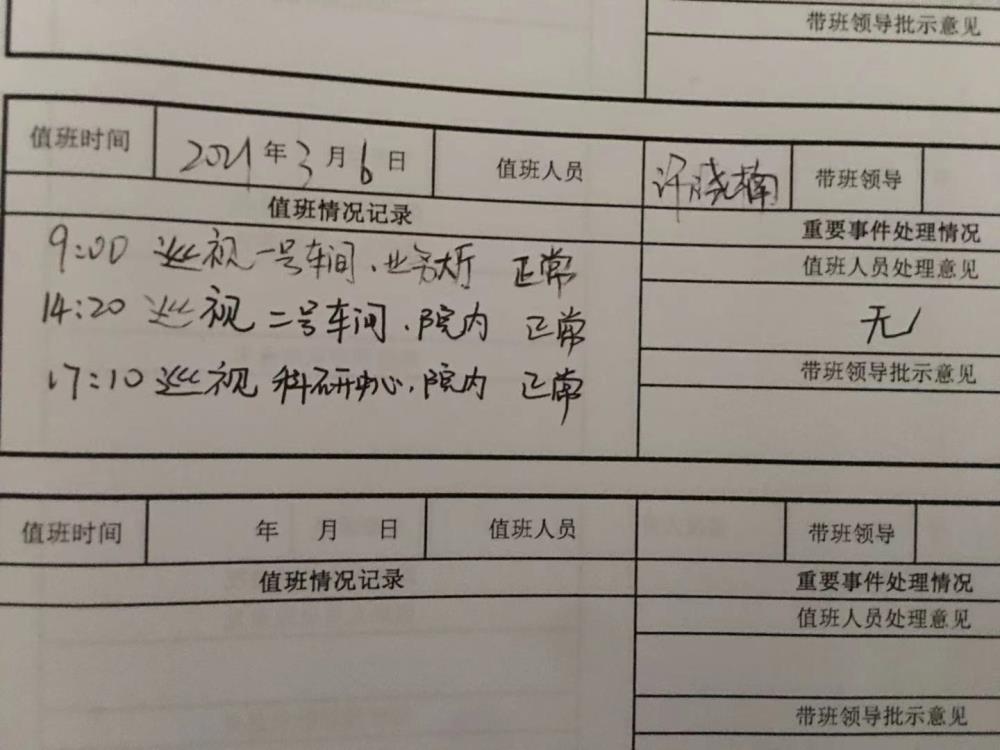 带班领导批示意见
值班时间 2021年3月6日 值班人员 许晓楠 带班领导
值班情况记录 重要事件处理情况
9:00 巡视一号车间、业务大厅 正常
值班人员处理意见
14:20 巡视二号车间、院内 正常
无
带班领导批示意见
17:10 巡视科研中心、院内 正常
值班时间 年 月 日 值班人员 带班领导
值班情况记录 重要事件处理情况
值班人员处理意见
带班领导批示意见